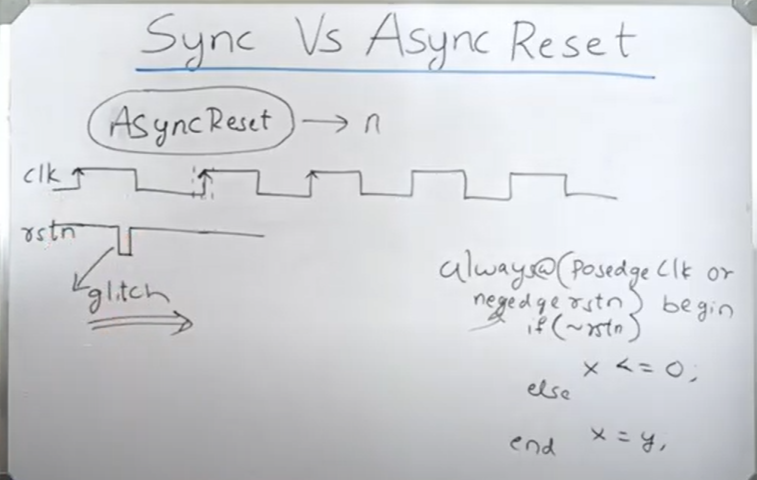 Sync Vs Async Reset
Async Reset → n
clk
rstn
glitch
always@(posedge clk or
negedge rstn) begin
if(~rstn)
x <= 0;
else
x = y,
end